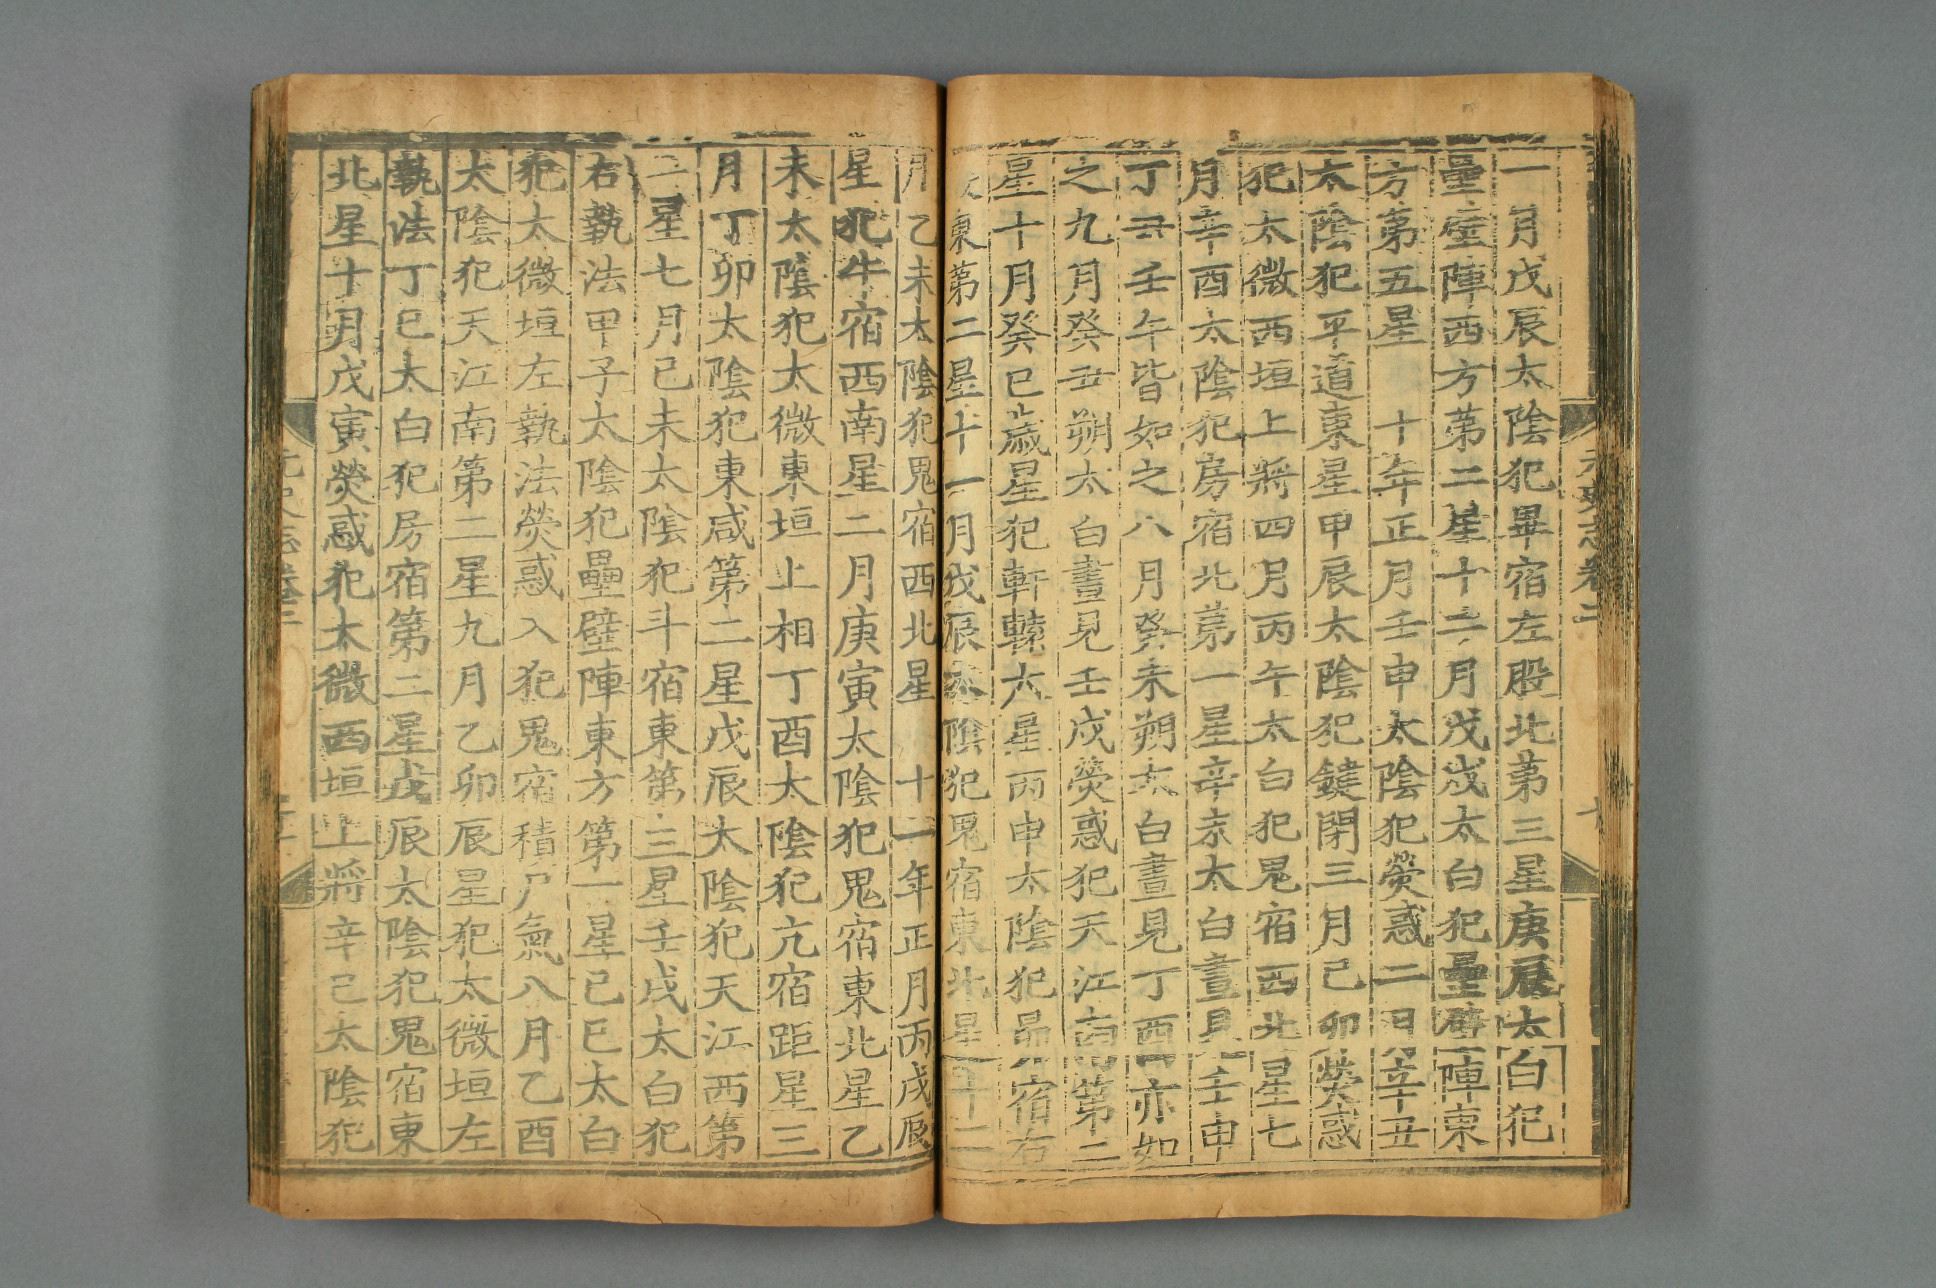 一月戊辰太陰犯畢宿左股北第三星庚辰太白犯
壘壁陣西方第二星十二月戊戌太白犯壘壁陣東
方第五星 十年正月壬申太陰犯熒惑二月辛丑
太陰犯平道東星甲辰太陰犯鍵閉三月己卯熒惑
犯太微西垣上將四月丙午太白犯鬼宿西北星七
月辛酉太陰犯房宿北第一星辛未太白晝見壬申
丁丑壬午皆如之八月癸未朔太白晝見丁酉亦如
之九月癸丑朔太白晝見壬戌熒惑犯天江南第二
星十月癸巳歲星犯軒轅大星丙申太陰犯昴宿右
東第二星十一月戊辰太陰犯鬼宿東北星十二
月乙未太陰犯鬼宿西北星 十一年正月丙戌辰
星犯牛宿西南星二月庚寅太陰犯鬼宿東北星乙
未太陰犯太微東垣上相丁酉太陰犯亢宿距星三
月丁卯太陰犯東咸第二星戊辰太陰犯天江西第
二星七月己未太陰犯斗宿東第三星壬戌太白犯
右執法甲子太陰犯壘壁陣東方第一星己巳太白
犯太微垣左執法熒惑入犯鬼宿積尸氣八月乙酉
太陰犯天江南第二星九月乙卯辰星犯太微垣左
執法丁巳太白犯房宿第二星戊辰太陰犯鬼宿東
北星十月戊寅熒惑犯太微西垣上將辛巳太陰犯
元史志卷二
七